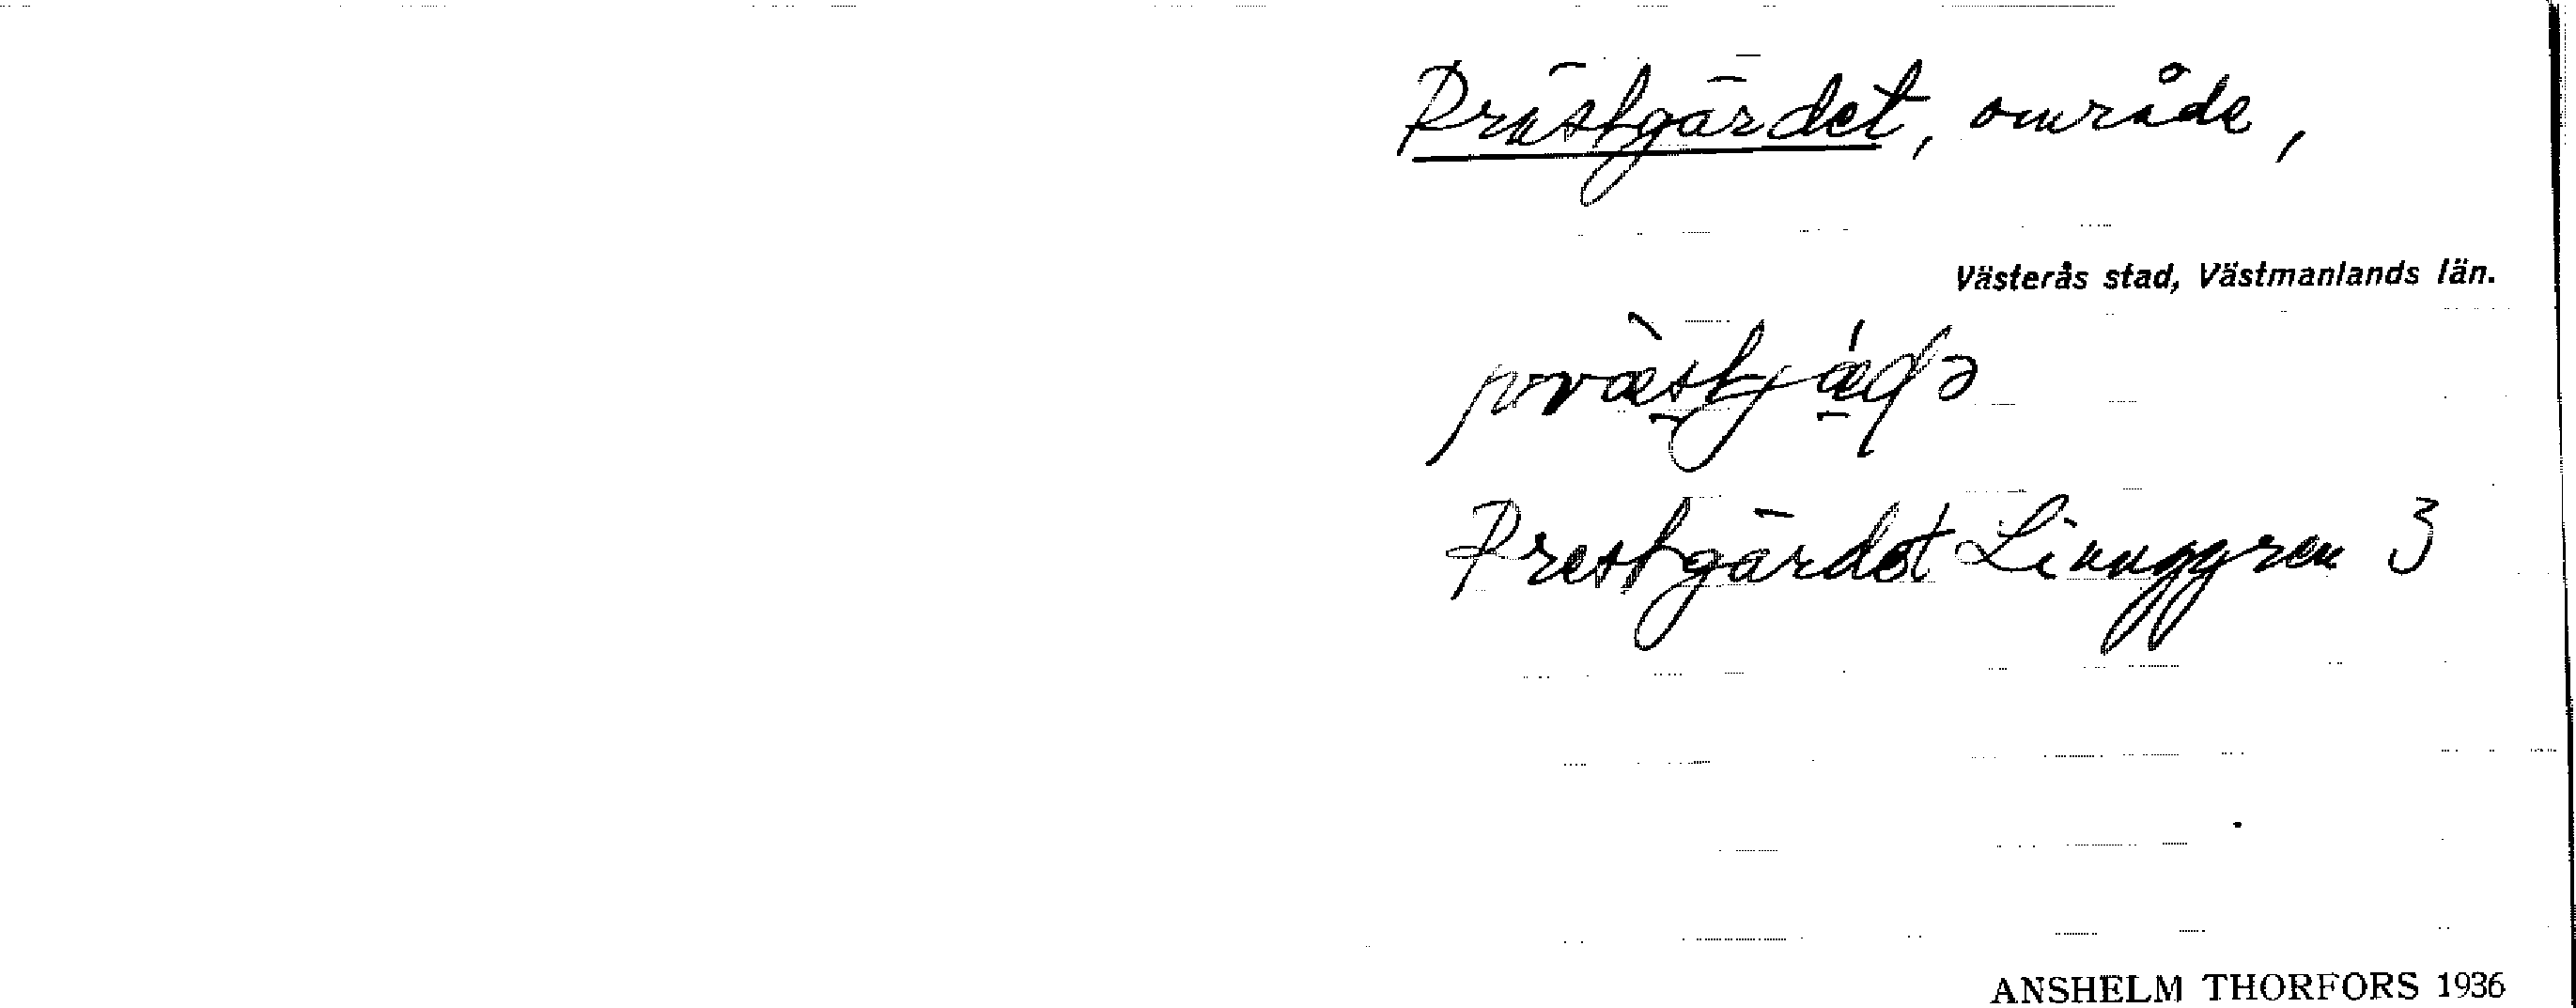 Prästgärdet, område,
Västerås stad, Västmanlands län.
præ̀stjǽ̣ḍə
Prestgärdet Linnggren 3
ANSHELM THORFORS 1936